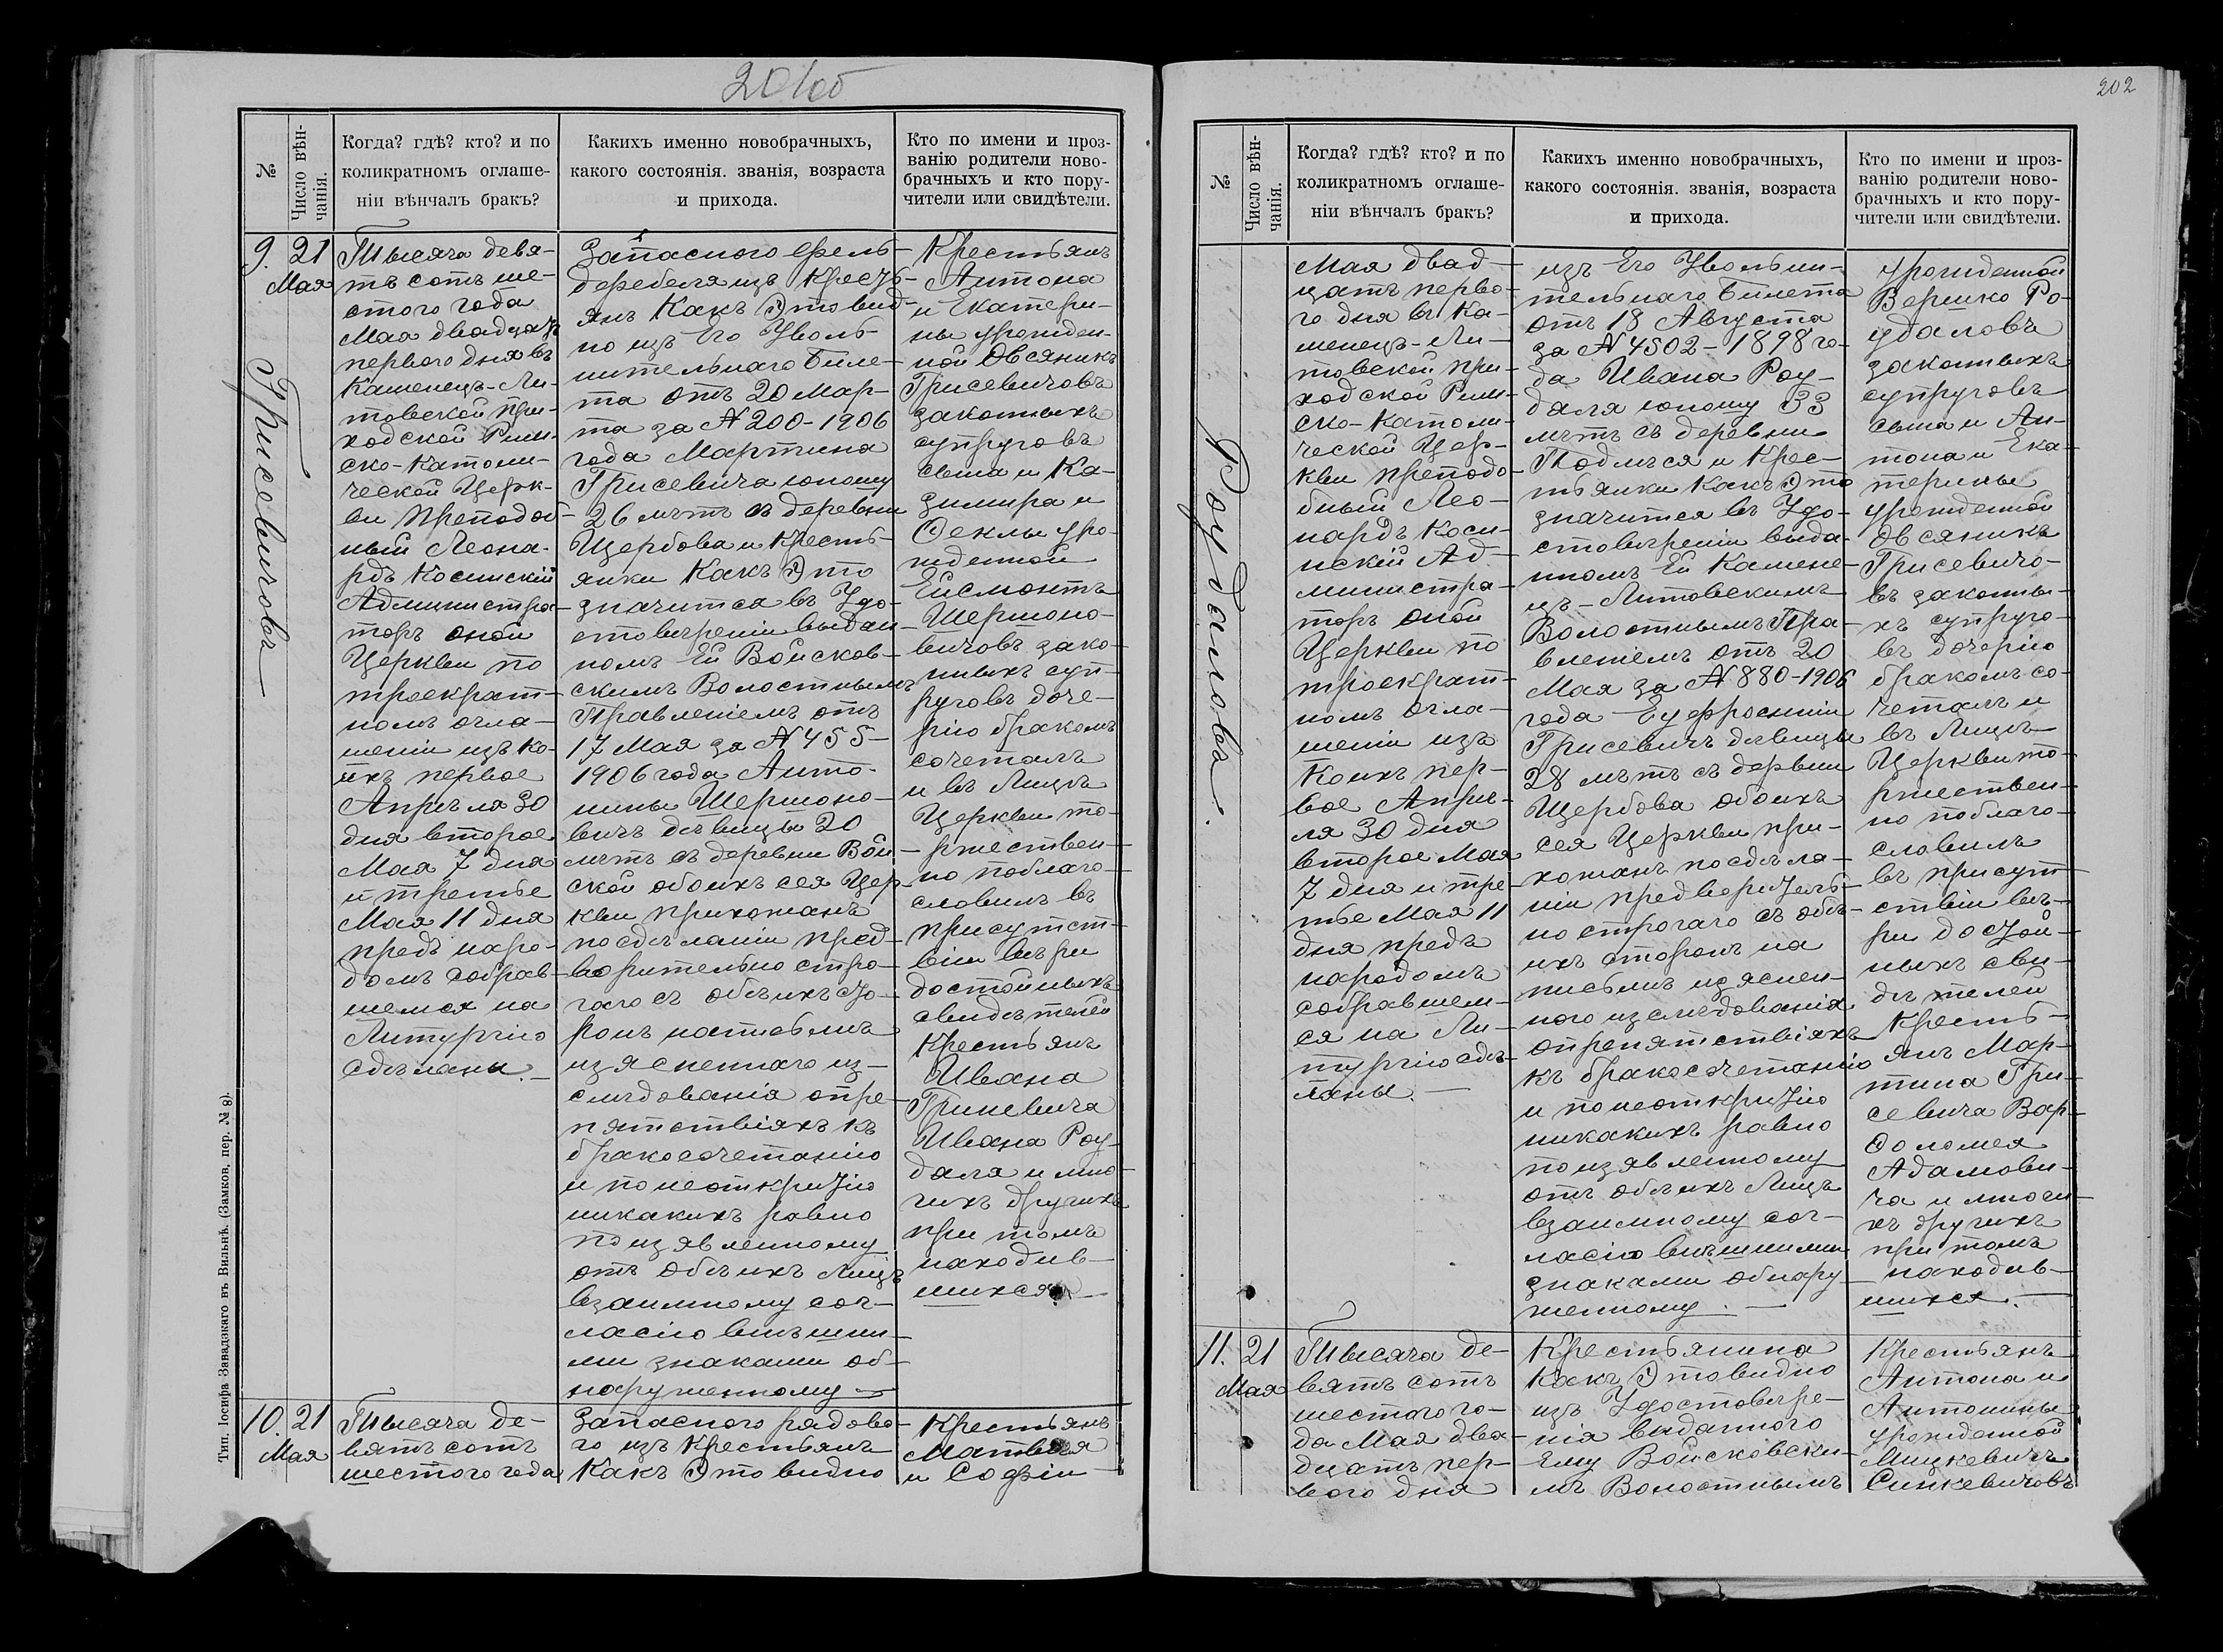 201об
№
Число вѣн-
чанія.
Когда? гдѣ? кто? и по
коликратномъ оглаше-
ніи вѣнчалъ бракъ?
Какихъ именно новобрачныхъ,
какого состоянія. званія, возраста
и прихода.
Кто по имени и проз-
ванію родители ново-
брачныхъ и кто пору-
чители или свидѣтели.
9. 21
Мая
Грисевичовъ
Тысяча девя-
тъ сотъ ше-
стого года
Мая двадцать
перваго дня въ
Каменецъ-Ли-
товской При-
ходской Рим-
ско-Католи-
ческой Церк-
ви Преподоб-
ный Леона-
рдъ Косинскій
Администра-
торъ оной
Церкви по
троекрат-
номъ огла-
шеніи изъ ко-
ихъ первое
Апрѣля 30
дня второе
Мая 7 дня
и третье
Мая 11 дня
предъ наро-
домъ собрав-
шемся на
Литургію
сдѣланы.—
Запасного фель-
дфебеля изъ Крестъ-
янъ Какъ Это вид-
но изъ Его Уволь-
нительнаго Биле-
та отъ 20 Мар-
та за № 200-1906
года Мартина
Грисевича юношу
26 лѣтъ съ деревни
Щербова и Кресть-
янки Какъ Это
значится въ Удо-
стовѣреніи выдан-
номъ Ей Войсков-
скимъ Волостнымъ
Правленіемъ отъ
17 Мая за № 455-
1906 года Анто-
нины Шермоно-
вичъ дѣвицы 20
лѣтъ съ деревни Вой-
ской обоихъ сея Цер-
кви прихожанъ
по сдѣланіи пред-
ворительно стро-
гаго съ обѣихъ Сто-
ронъ написьмѣ
изясненнаго из-
слѣдованія опре-
пятствіяхъ къ
бракосочетанію
и понеоткрытію
никакихъ равно
по изявленному
отъ обѣихъ Лицъ
взаимному сог-
ласію внѣшни-
ми знаками об-
наруженному—
Крестьянъ
Антона
и Екатери-
ны урожден-
ной Овсяникъ
Грисевичовъ
законныхъ
супруговъ
сына и Ка-
зимира и
Ѳеклы уро-
жденной
Ейсмонтъ
Шермоно-
вичовъ зако-
нныхъ суп-
руговъ доче-
рію бракомъ
сочеталъ
и въ Лицѣ
Церкви то-
ржествен-
но поблаго-
словилъ въ
присутст-
віи вѣри
достойныхъ
свидѣтелей
Крестьянъ
Ивана
Гриневича
Ивана Роу-
даля и мно-
гихъ другихъ
при томъ
находив-
шихся
10. 21
Мая
Тысяча де-
вять сотъ
шестого года
Запасного рядово-
го изъ Крестьянъ
Какъ Это видно
Крестьянъ
Матвѣя
и Софіи
Тип. Іосифа Завадзкаго въ Вильнѣ. (Замков. пер. № 8).
202
№
Число вѣн-
чанія.
Когда? гдѣ? кто? и по
коликратномъ оглаше-
ніи вѣнчалъ бракъ?
Какихъ именно новобрачныхъ,
какого состоянія. званія, возраста
и прихода.
Кто по имени и проз-
ванію родители ново-
брачныхъ и кто пору-
чители или свидѣтели.
Роудаловъ.
Мая двад-
цать перво-
го дня въ Ка-
менецъ-Ли-
товской При-
ходской Рим-
ско-Католи-
ческой Цер-
кви Преподо-
бный Лео-
нардъ Коси-
нскій Ад-
министра-
торъ оной
Церкви по
троекрат-
номъ огла-
шеніи изъ
Коихъ пер-
вое Апрѣ-
ля 30 дня
второе Мая
7 дня и тре-
тье Мая 11
дня предъ
народомъ
собравшем-
ся на Ли-
тургію сдѣ-
ланы.—
изъ Его Увольни-
тельнаго Билета
отъ 18 Августа
за № 4502-1898 го-
да Ивана Роу-
даля юношу 33
лѣтъ съ деревни
Подлѣся и Крес-
тьянки Какъ Это
значится въ Удо-
стовѣреніи выда-
нномъ Ей Камене-
цъ-Литовскимъ
Волостнымъ Пра-
вленіемъ отъ 20
Мая за № 880-1906
года Еуфросиніи
Грисевичъ дѣвицы
28 лѣтъ съ дервни
Щербова обоихъ
сея Церкви при-
хожанъ по сдѣла-
ніи предворитель-
но строгаго съ обѣ-
ихъ сторонъ на
письмѣ изяснен-
ного изслѣдованія
опрепятствіяхъ
къ бракосочетанію
и понеоткрытію
никакихъ равно
по изявленному
отъ обѣихъ Лицъ
взаимному сог-
ласію внѣшними
знаками обнару-
женному.—
урожденной
Вершко Ро-
удаловъ
законныхъ
супруговъ
сына и Ан-
тона и Ека-
терины
урожденной
Овсяникъ
Грисевичо-
въ законны-
хъ супруго-
въ дочерію
бракомъ со-
четалъ и
въ Лицѣ
Церкви то-
ржествен-
но поблаго-
словилъ
въ присут-
ствіи вѣ-
ри достой-
ныхъ сви-
дѣтелей
Кресть-
янъ Мар-
тина Гри-
севича Вар-
ѳоломея
Адамови-
ча и многи-
хъ другихъ
при томъ
находив-
шихся.—
11. 21
Мая
Тысяча де-
вять сотъ
шестого го-
да Мая два-
дцать пер-
вого дня
Крестьянина
какъ Это видно
изъ Удостовѣре-
нія выданного
Ему Войсковски-
мъ Волостнымъ
Крестьянъ
Антона и
Антонины
урожденной
Мицкевичъ
Синкевичовъ